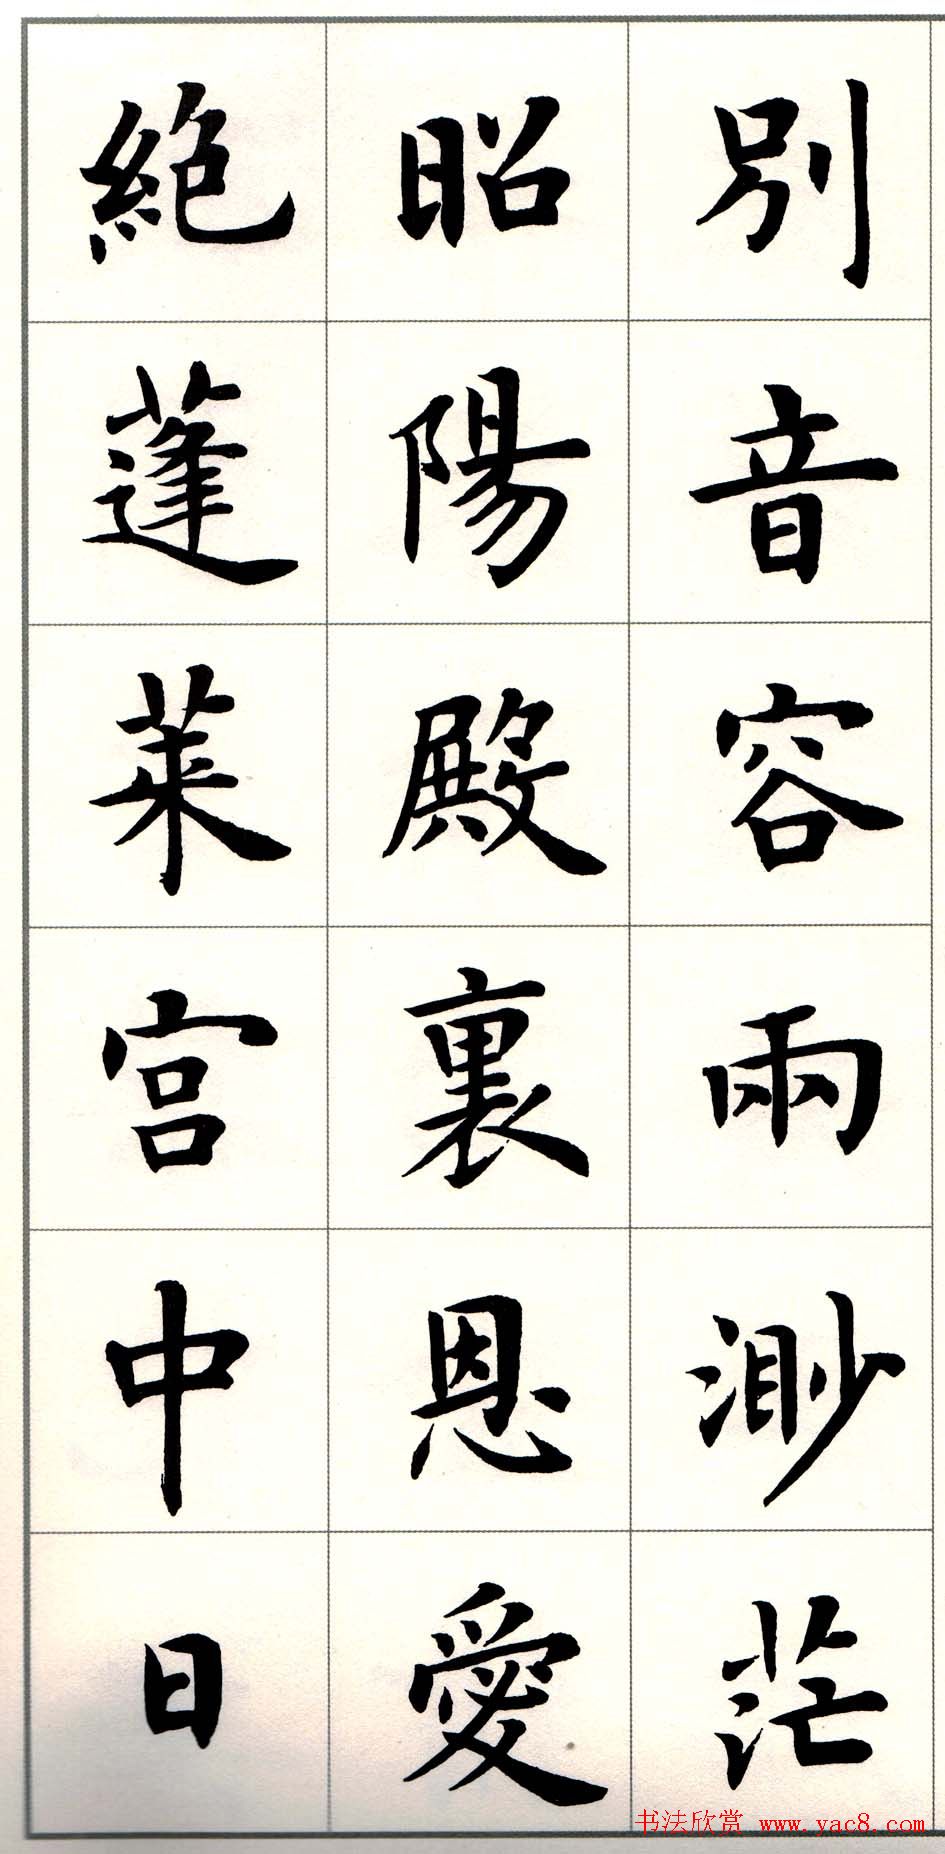 別音容兩渺茫
昭陽殿裏恩愛
絶蓬萊宮中日
书法欣赏 www.yac8.com